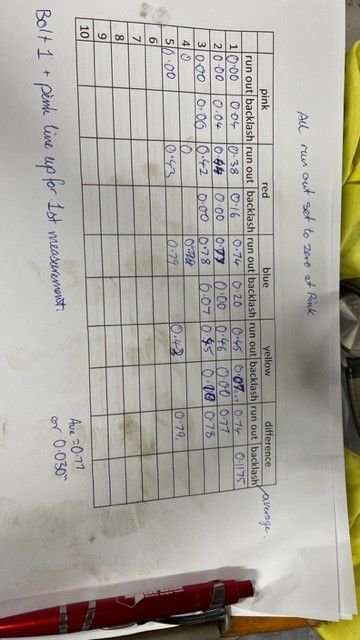 All run out set to zero at Pink
average.
pink red blue yellow difference
run out backlash run out backlash run out backlash run out backlash run out backlash
1 0.00 0.04 0.38 0.16 0.74 0.20 0.45 0.07 0.74 0.1175
2 0.00 0.04 0.44 0.00 0.77 0.00 0.46 0.00 0.77
3 0.00 0.06 0.42 0.00 0.78 0.07 0.45 0.78
4 0 0
5 0.00 0.43 0.79 0.43 0.79
6
7
8
9
10
Ave = 0.77
or 0.030"
Bolt 1 + pink line up for 1st measurement.